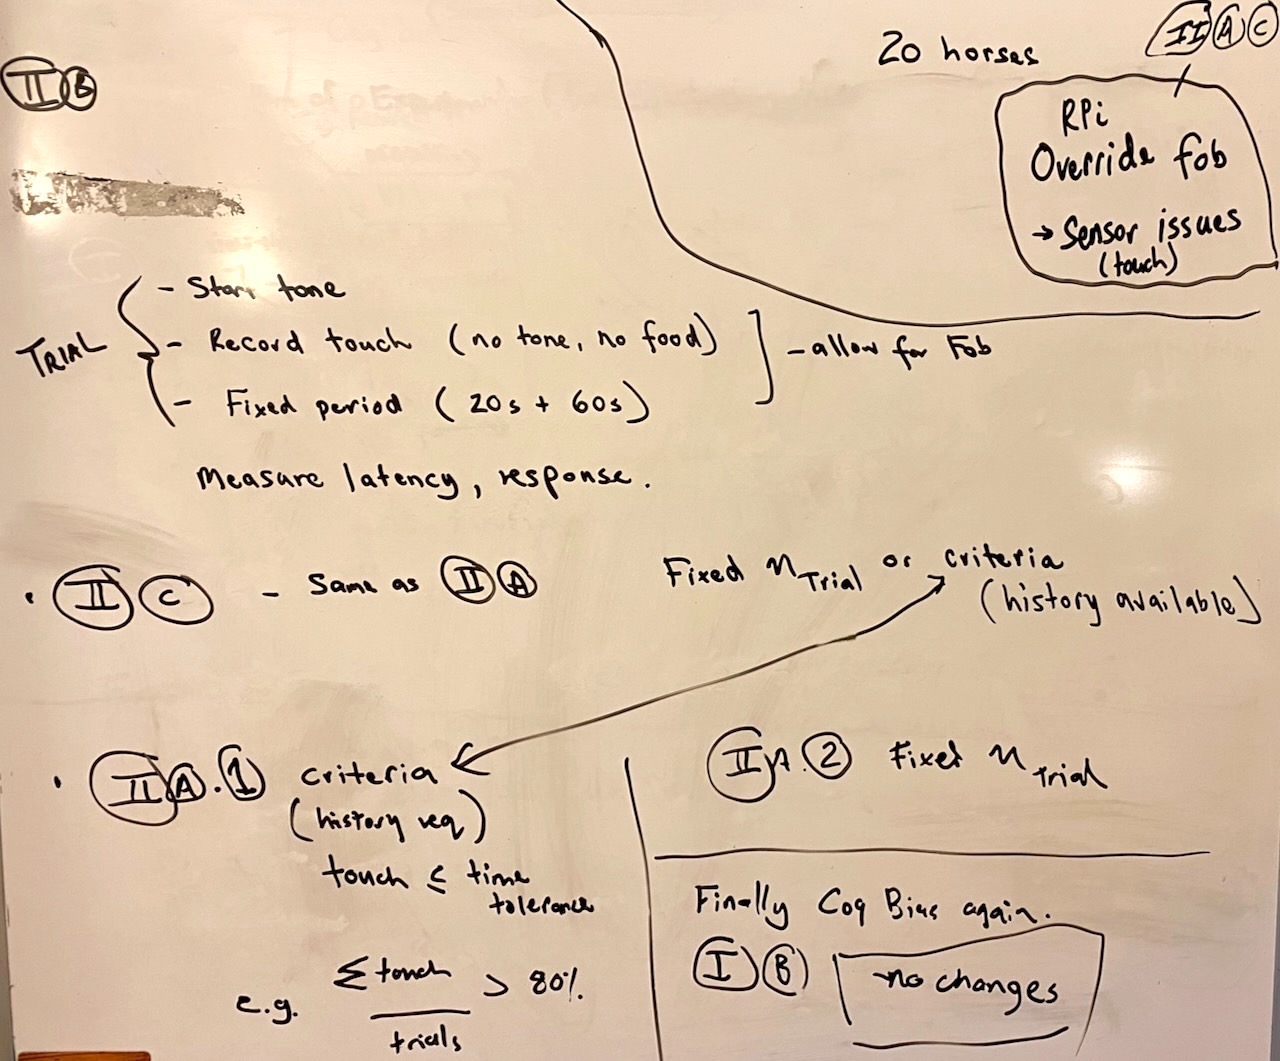 II B
20 horses
II A C
RPi
Override fob
→ Sensor issues
(touch)
TRIAL
- Start tone
- Record touch (no tone, no food)
- Fixed period (20s + 60s)
- allow for Fob
Measure latency, response.
• II C - Same as II A
Fixed n Trial or criteria
(history available)
• II A.1 criteria
(history req)
touch ≤ time
tolerance
e.g. Σ touch
trials
> 80%
II A.2 Fixed n Trial
Finally Cog Bias again.
I B no changes